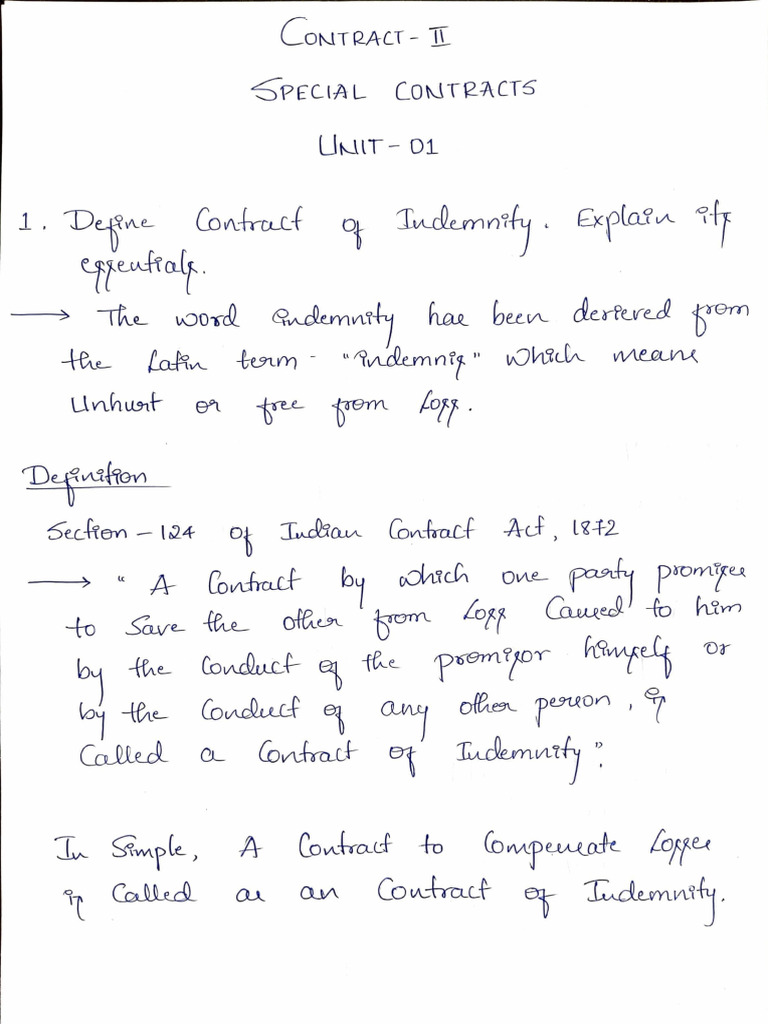 CONTRACT - II
SPECIAL CONTRACTS
UNIT - 01
1. Define Contract of Indemnity. Explain its
essentials.
→ The word indemnity has been derieved from
the Latin term - "indemnis" which means
Unhurt or free from Loss.
Definition
Section - 124 of Indian Contract Act, 1872
→ " A Contract by which one party promises
to Save the other from Loss Caused to him
by the Conduct of the promisor himself or
by the Conduct of any other person, is
Called a Contract of Indemnity".
In Simple, A Contract to Compensate Losses
is Called as an Contract of Indemnity.